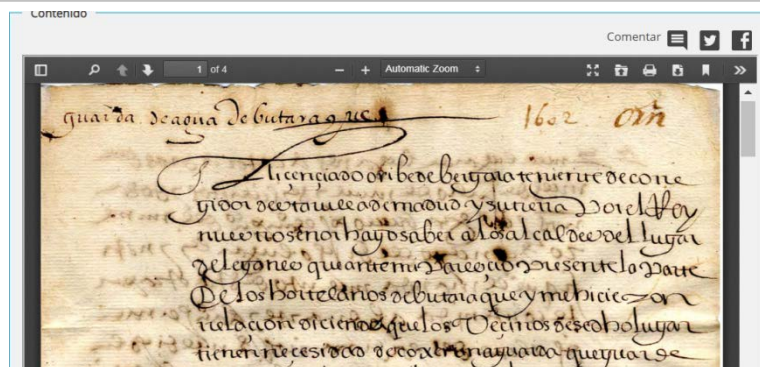 Contenido
Comentar
1 of 4
Automatic Zoom
guarda de agua de butaraque 1602 orin
El licençiado oribe de bergara teniente de corre
gidor desta villa de madrid y su tierra Por el Rey
nuestro señor hago saber a los alcaldes del lugar
de leganes que ante mi Pareçio Presente la Parte
De los hortelanos de butaraque y me hicieron
relaçion diciendo que los Veçinos desdho lugar
tienen necesidad de coxer una guarda que guarde